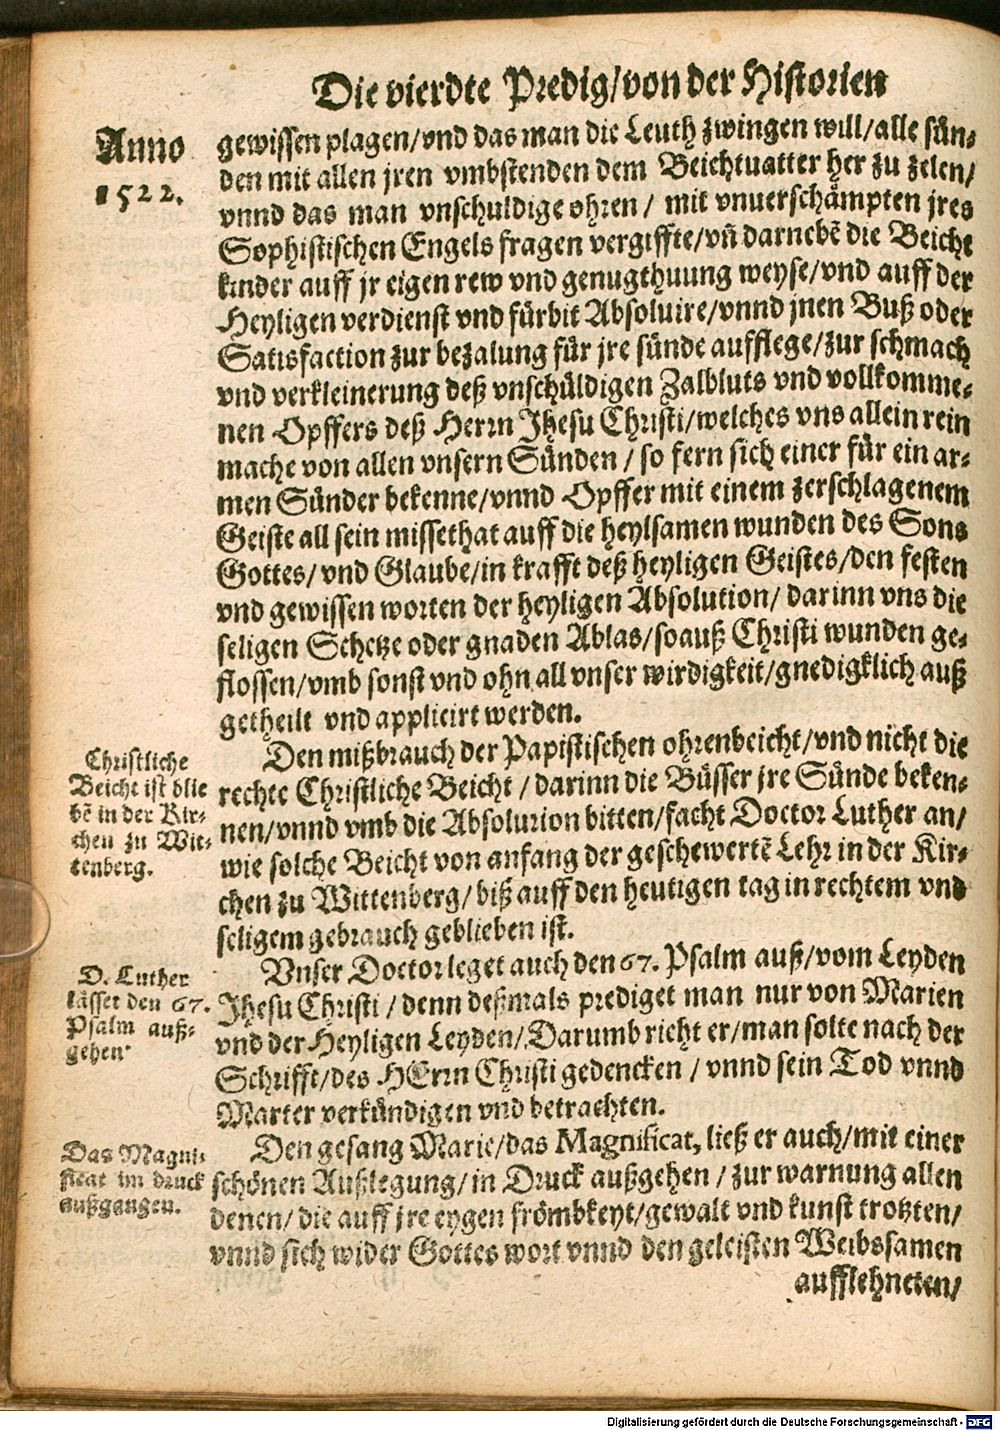 Die vierdte Predig/von der Historien
Anno
1522.
gewissen plagen/vnd das man die Leuth zwingen will/alle sün-
den mit allen jren vmbstenden dem Beichtuatter her zu zelen/
vnnd das man vnschuldige ohren/ mit vnuerschämpten jres
Sophistischen Engels fragen vergiffte/vñ darnebẽ die Beicht
kinder auff jr eigen rew vnd genugthuung weyse/vnd auff der
Heyligen verdienst vnd fürbit Absoluire/vnnd jnen Buß oder
Satisfaction zur bezalung für jre sünde aufflege/zur schmach
vnd verkleinerung deß vnschüldigen Zalbluts vnd vollkomme-
nen Opffers deß Herrn Jhesu Christi/welches vns allein rein
mache von allen vnsern Sünden / so fern sich einer für ein ar-
men Sünder bekenne/vnnd Opffer mit einem zerschlagenem
Geiste all sein missethat auff die heylsamen wunden des Sons
Gottes/ vnd Glaube/in krafft deß heyligen Geistes/den festen
vnd gewissen worten der heyligen Absolution/ darinn vns die
seligen Schetze oder gnaden Ablas/so auß Christi wunden ge-
flossen/vmb sonst vnd ohn all vnser wirdigkeit/gnedigklich auß
getheilt vnd applicirt werden.
Christliche
Beicht ist blie
bẽ in der Kir-
chen zu Wit-
tenberg.
Den mißbrauch der Papistischen ohrenbeicht/vnd nicht die
rechte Christliche Beicht / darinn die Büsser jre Sünde beken-
nen/vnnd vmb die Absolution bitten/facht Doctor Luther an/
wie solche Beicht von anfang der geschewertẽ Lehr in der Kir-
chen zu Wittenberg/ biß auff den heutigen tag in rechtem vnd
seligem gebrauch geblieben ist.
D. Luther
lässet den 67.
Psalm auß-
gehen.
Vnser Doctor leget auch den 67. Psalm auß/vom Leyden
Jhesu Christi / denn deßmals prediget man nur von Marien
vnd der Heyligen Leyden/Darumb richt er/man solte nach der
Schrifft/des HErrn Christi gedencken / vnnd sein Tod vnnd
Marter verkündigen vnd betrachten.
Das Magni-
ficat im druck
außgangen.
Den gesang Marie/das Magnificat, ließ er auch/mit einer
schönen Außlegung/in Druck außgehen / zur warnung allen
denen/ die auff jre eygen frömbkeyt/gewalt vnd kunst trotzten/
vnnd sich wider Gottes wort vnnd den geleisten Weibssamen
aufflehneten/
Digitalisierung gefördert durch die Deutsche Forschungsgemeinschaft - DFG